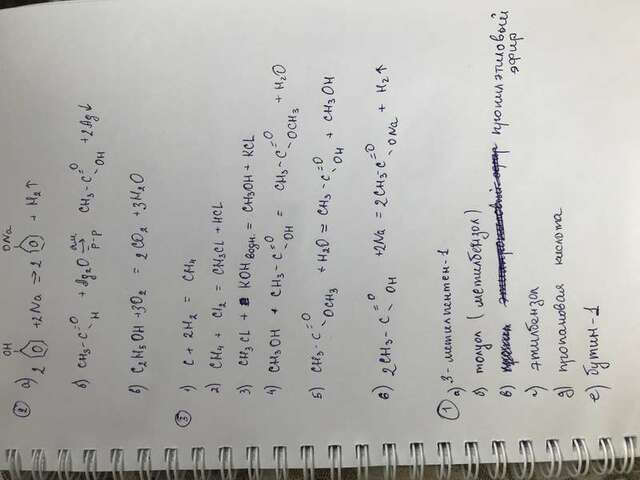 2 а) 2 OH + 2Na => 2 ONa + H₂↑
б) CH₃-C =O H + Ag₂O ам. р-р → CH₃-C =O OH + 2Ag↓
в) C₂H₅OH + 3O₂ = 2CO₂ + 3H₂O
3 1) C + 2H₂ = CH₄
2) CH₄ + Cl₂ = CH₃Cl + HCl
3) CH₃Cl + KOH водн. = CH₃OH + KCl
4) CH₃OH + CH₃-C =O OH = CH₃-C =O OCH₃ + H₂O
5) CH₃-C =O OCH₃ + H₂O = CH₃-C =O OH + CH₃OH
6) 2CH₃-C =O OH + 2Na = 2CH₃-C =O ONa + H₂↑
1 а) 3-метилпентен-1
б) толуол (метилбензол)
в) пропилэтиловый
эфир
г) этилбензол
д) пропановая кислота
е) бутин-1